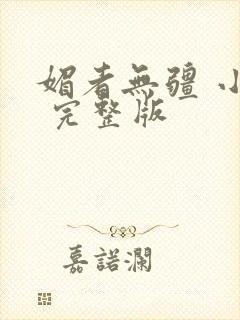 媚者無疆 小
完整版
嘉諾瀾